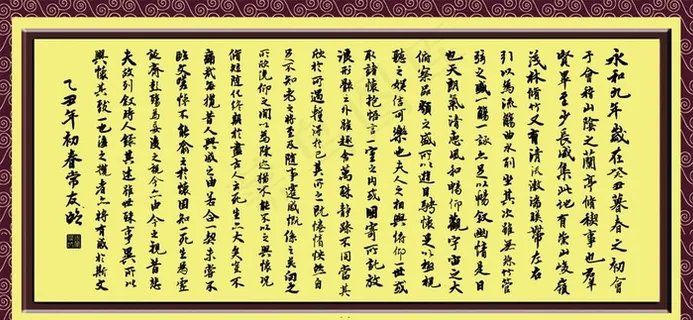 永和九年歲在癸丑暮春之初會
于會稽山陰之蘭亭脩稧事也羣
賢畢至少長咸集此地有崇山峻嶺
茂林脩竹又有清流激湍暎帶左右
引以為流觴曲水列坐其次雖無絲竹管
弦之盛一觴一詠亦足以暢敘幽情是日
也天朗氣清惠風和暢仰觀宇宙之大
俯察品類之盛所以遊目騁懷足以極視
聽之娛信可樂也夫人之相與俯仰一世或
取諸懷抱悟言一室之內或因寄所託放
浪形骸之外雖趣舍萬殊靜躁不同當其
欣於所遇得於己其所之既惓情怏然自
足不知老之將至及隨事遷感慨係之矣向之
所欣俛仰之間以為陳迹猶不能不以之興懷況
脩短隨化終期於盡古人云死生亦大矣豈不
痛哉每攬昔人興感之由若合一契未嘗不
臨文嗟悼不能喻之於懷固知一死生為虛
誕齊彭殤為妄後之視今亦由今之視昔悲
夫故列敘時人錄其述雖世殊事異所以
興懷其致一也後之攬者亦將有感於斯文
乙丑年初春常友